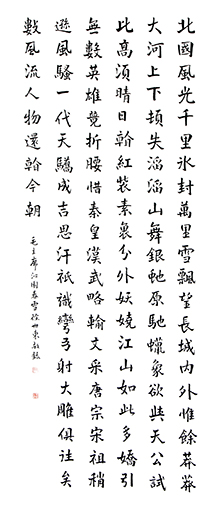 北國風光千里冰封萬里雪飄望長城內外惟餘莽莽
大河上下頓失滔滔山舞銀蛇原馳蠟象欲與天公試
比高須晴日看紅裝素裹分外妖嬈江山如此多嬌引
無數英雄競折腰惜秦皇漢武略輸文采唐宗宋祖稍
遜風騷一代天驕成吉思汗祇識彎弓射大雕俱往矣
數風流人物還看今朝
毛主席沁園春雪徐州東